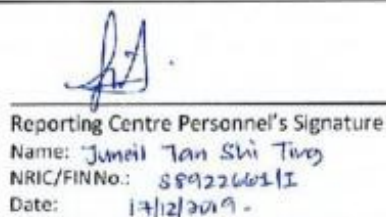 Reporting Centre Personnel's Signature
Name: Tan Shi Ting
NRIC/FINNo.:
Date: 17/12/2019.